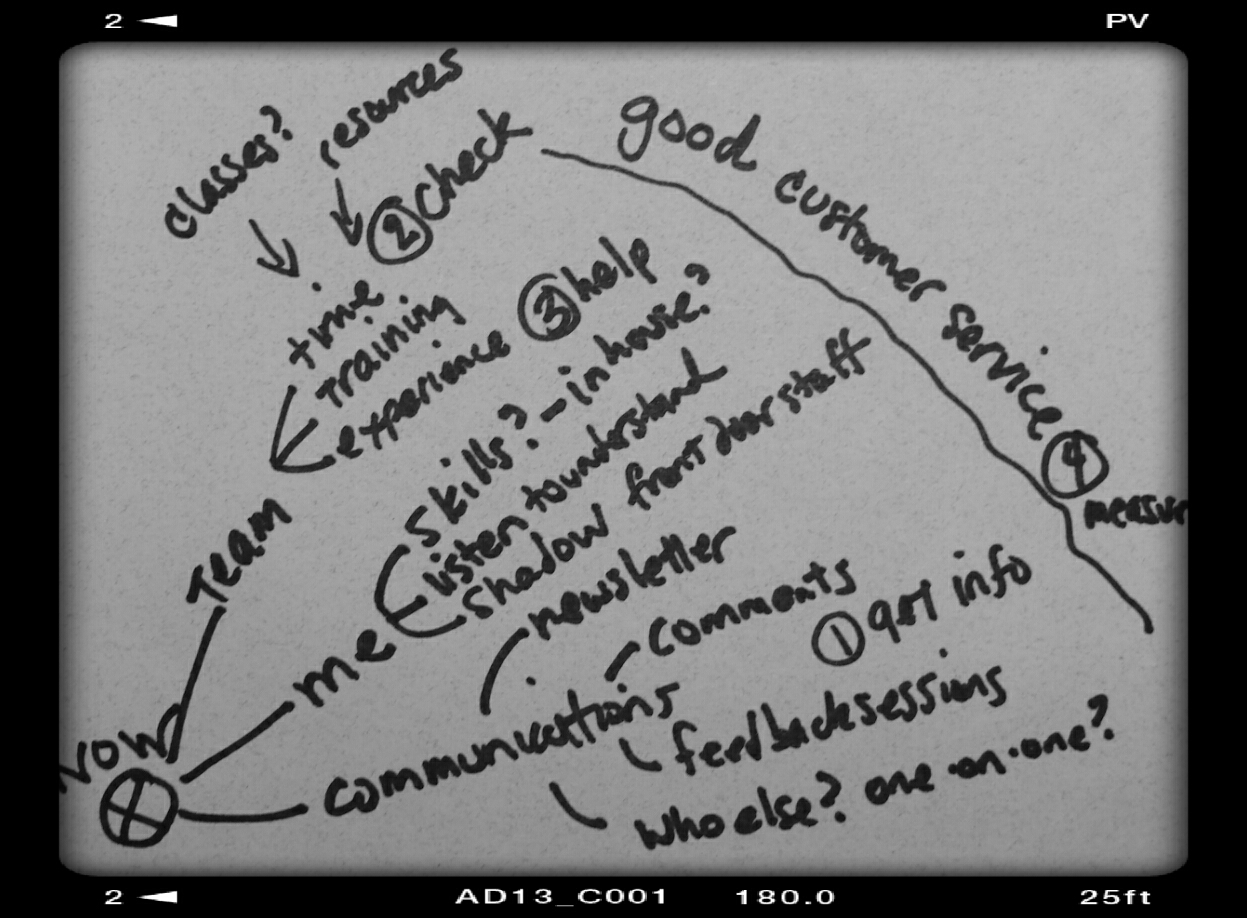 2 PV
classes?
resources
② check
time
training
experience
③ help
Team
skills? - in house?
listen to understand
shadow front door staff
me
good customer service
④
measur
newsletter
comments
① get info
communications
feedback sessions
who else? one-on-one?
Now
2 AD13_C001 180.0 25ft